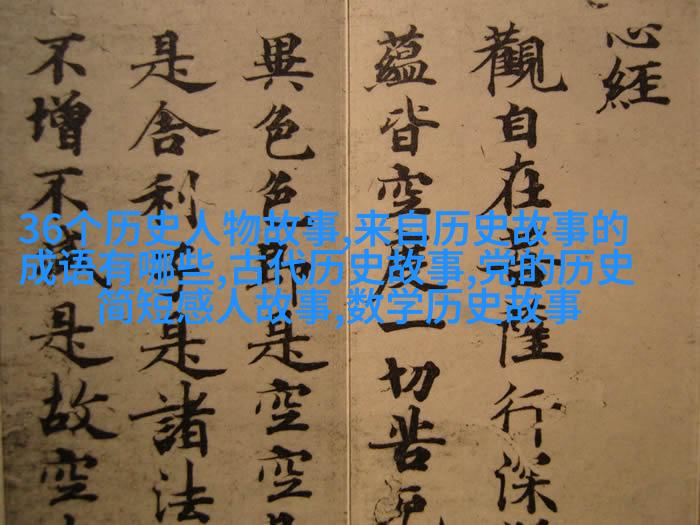 心經
觀自在菩薩行深
蘊皆空度一切苦厄
異色色即是空空
是舍利子是諸法
不增不減是故空
36个历史人物故事,来自历史故事的
成语有哪些,古代历史故事,党的历史
简短感人故事,数学历史故事